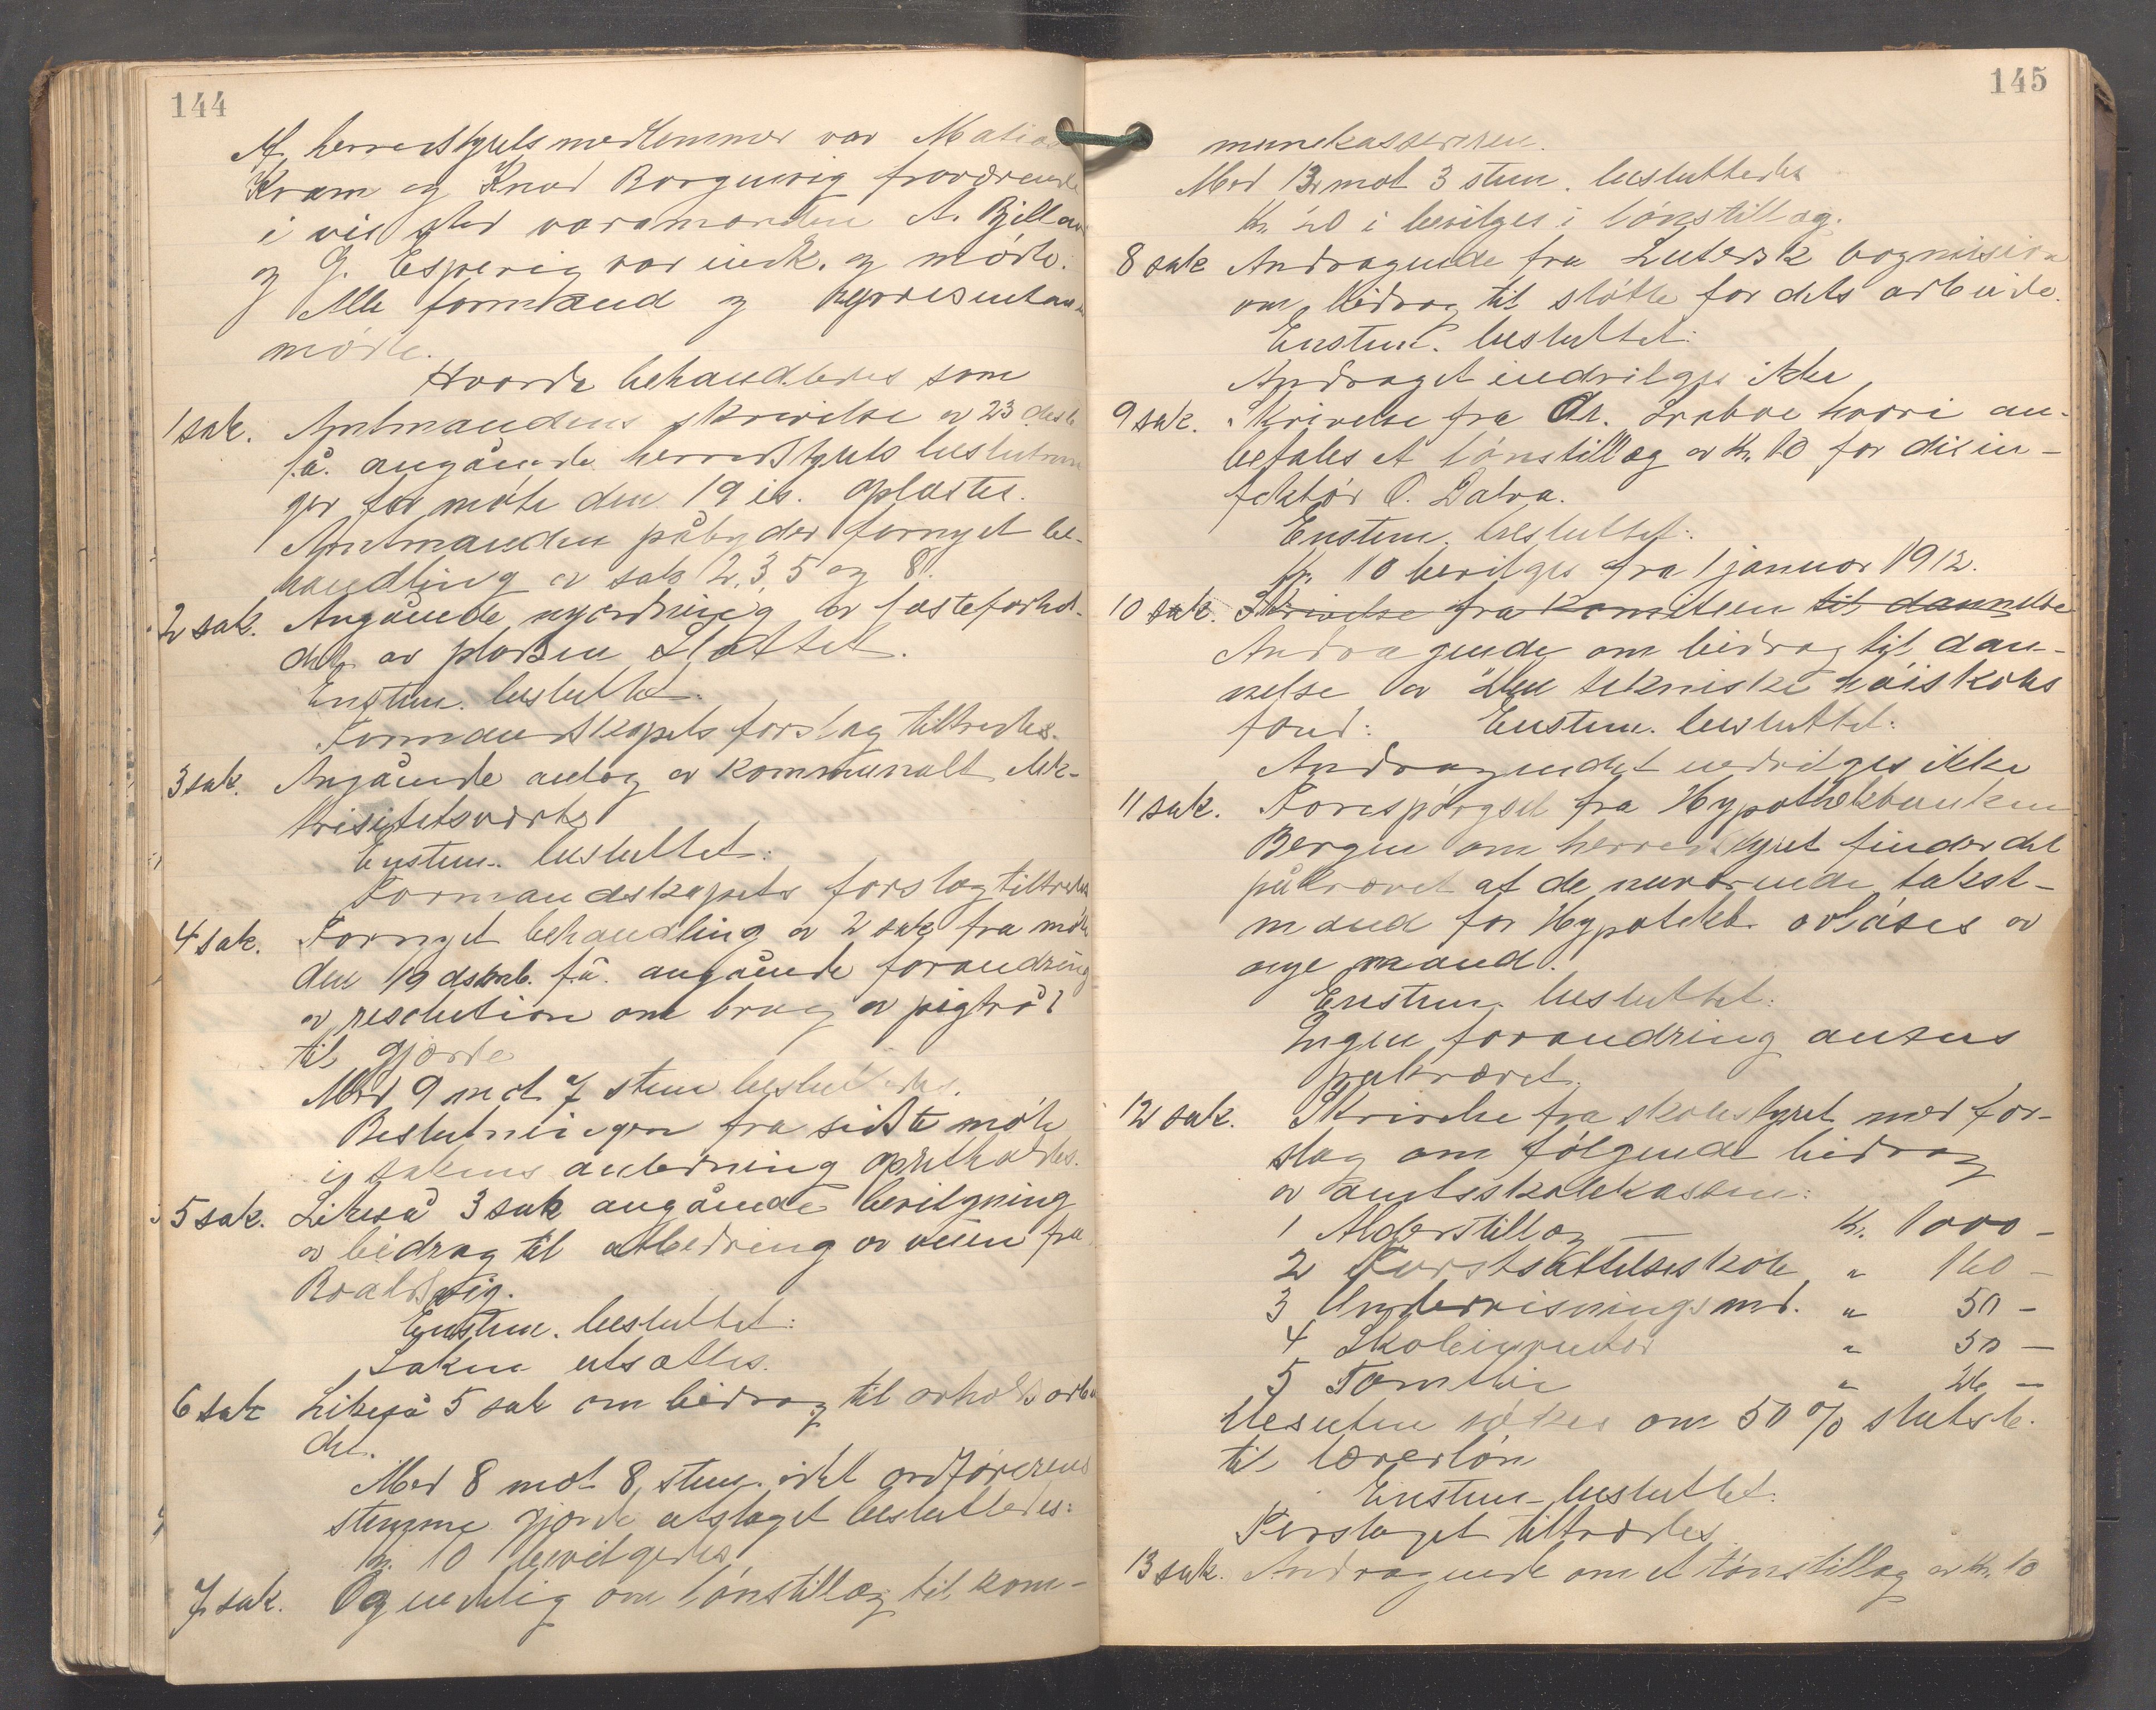 144
Af herredstyrets medlemmer var Matias
Kvam og Knud Borgenvig fraværende
i vis sted varamændene A. Bjelland
og G. Espevig var indk. og mødte.
Alle formænd og repræsentanter
mødte.
Hvorda behandledes som
1 sak. Amtmandens skrivelse av 23 desb.
f.å. angående herredstyrets beslutnin
ger for møte den 19 is. oplæstes.
Amtmanden påbyder fornyet be-
handling av sak 2, 3, 5 og 8.
2 sak. Angående nyordning av fæsteforhol-
det av pladsen Slottet.
Enstem. besluttet:
Formandskapets forslag tiltredes.
3 sak. Angående anlæg av kommunalt elek-
trisitetsværk
Enstem. besluttet:
Formandskapets forslag tiltredes
4 sak. Fornyet behandling av 2 sak fra møte
den 19 desmb. f.å. angående forandring
av resolution om brug av pigtråd
til gjærde
Med 9 mot 7 stem besluttedes.
Beslutningen fra sidste møte
i sakens anledning opretholdes.
5 sak. Likeså 3 sak angående bevilgning
av bidrag til utbedring av veien fra
Roaldsvig.
Enstem. besluttet:
Saken utsættes.
6 sak Likeså 5 sak om bidrag til avholdsarbei
det.
Med 8 mot 8 stem. idet ordførerens
stemme gjorde utslaget besluttedes:
kr. 10 bevilgedes
7 sak. Og endelig om lønstillæg til kom-
145
munekassereren.
Med 13 mot 3 stem. besluttedes
Kr. 20 i bevilges i lønstillæg.
8 sak Andragende fra Lutersk bogmision
om bidrag til støtte for dets arbeide.
Enstem. besluttet:
Andraget indvilges ikke
9 sak. Skrivelse fra Dr. Graboe hvori an-
befales et lønstillæg av kr. 10 for disin-
fektør O. Dalva.
Enstem. besluttet:
Kr. 10 bevilges fra 1 januar 1912.
10 sak. Skrivelse fra komiteen til dannelse
Andragende om bidrag til dan-
nelse av Den tekniske høiskoles
fond: Enstem. besluttet:
Andragendet indvilges ikke
11 sak. Forespørgsel fra Hypothekbanken
Bergen om herredstyret finder det
påkrævet at de nuværende takst-
mænd for Hypotekb. avløses av
nye mænd.
Enstem. besluttet:
Ingen forandring ansees
påkrævet.
12 sak. Skrivelse fra skolestyret med for-
slag om følgende bidrag
av amtsskolekassen:
1 Alderstillæg — Kr. 1000 –
2 Fortsættelsesskole " 160 –
3 Undervisningsmd. " 50 –
4 Skoleinventar " 50 –
5 Tomtleie " 26 –
Desuten søkes om 50 % statsb.
til lærerløn
Enstem. besluttet:
Forslaget tiltrædes
13 sak. Andragende om et lønstillæg av kr. 10